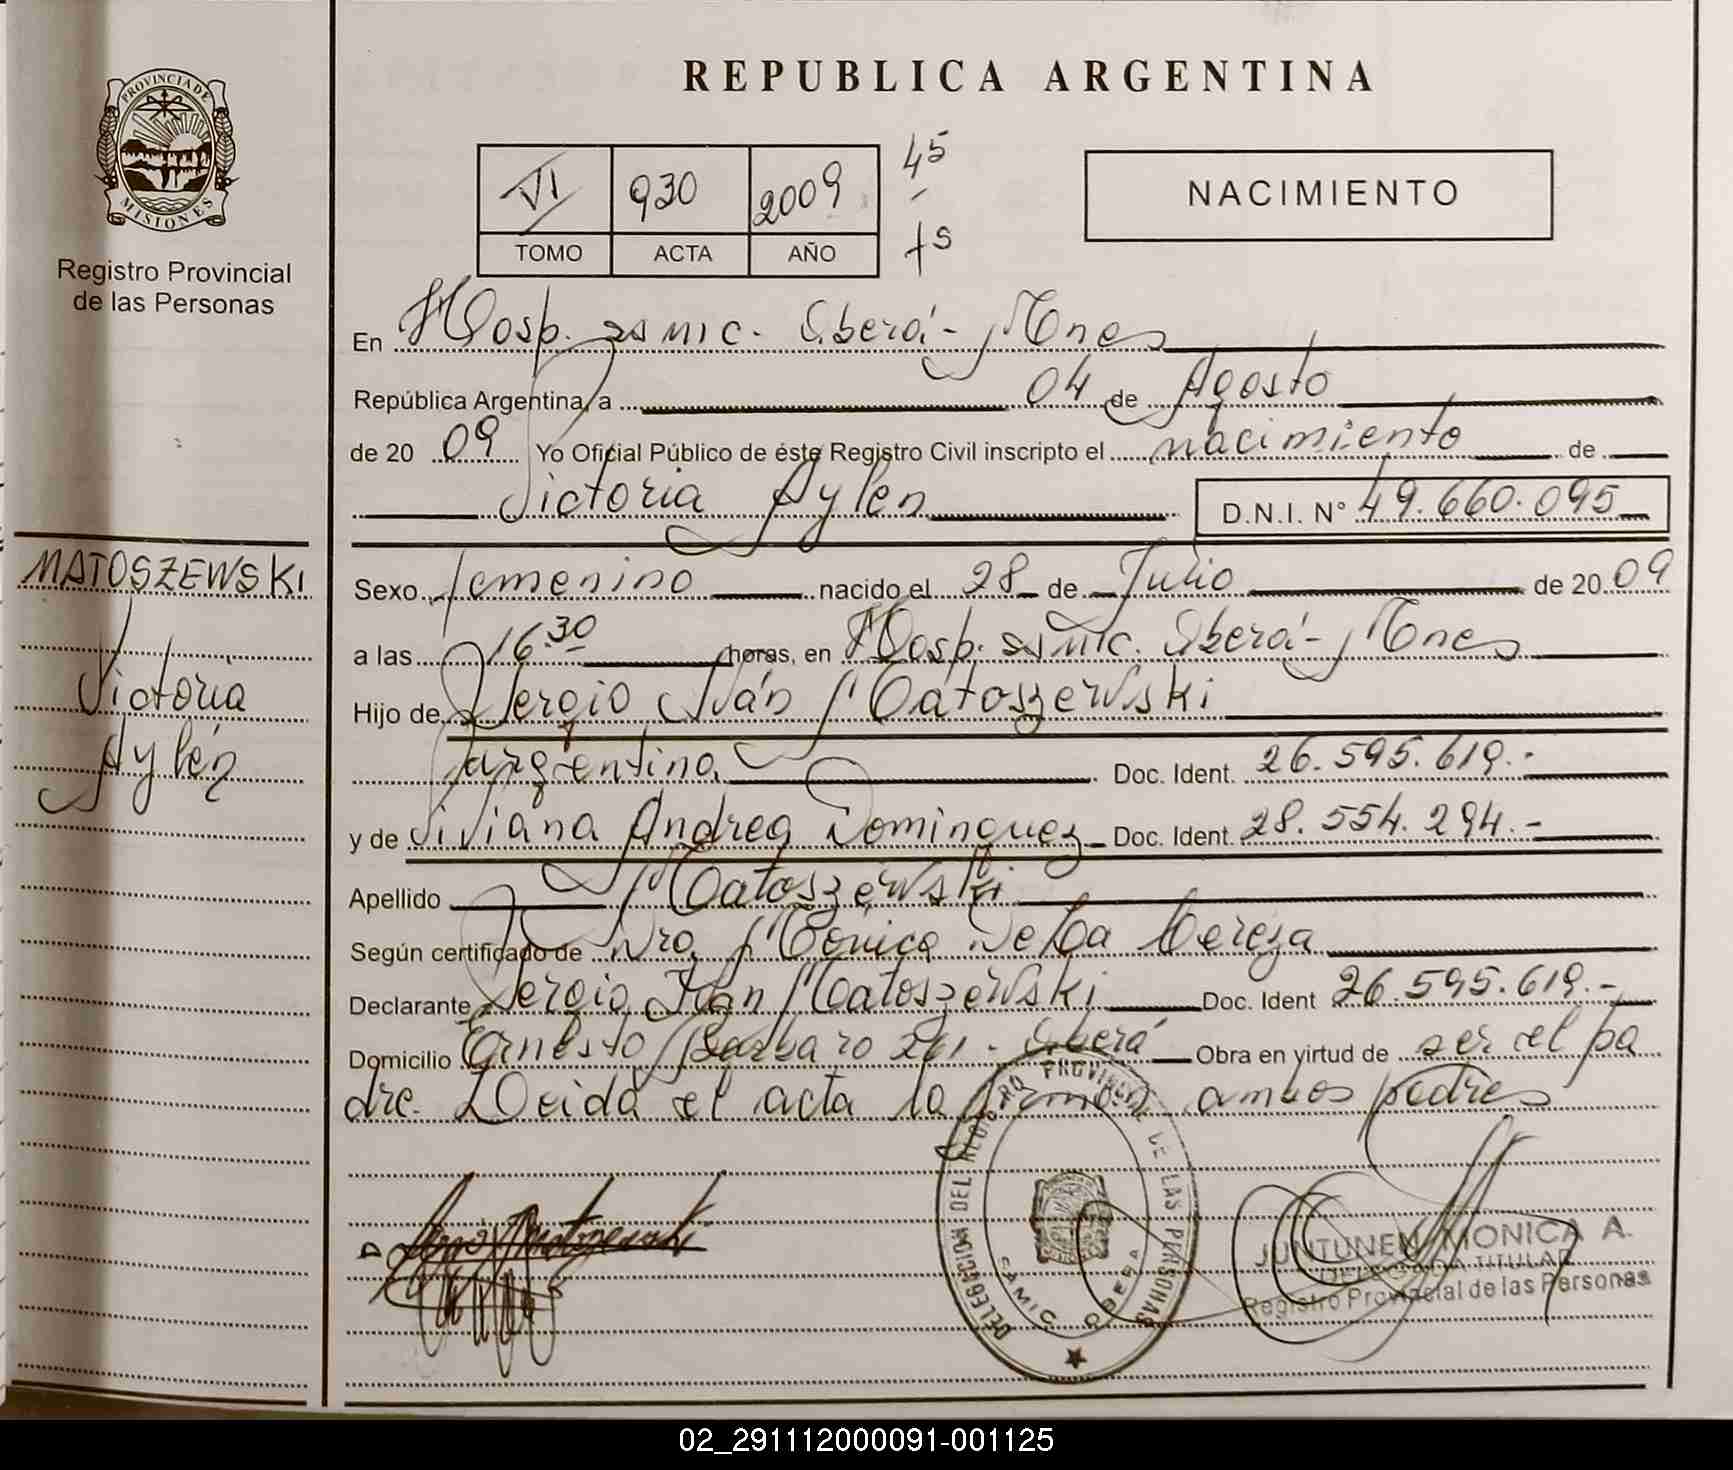 PROVINCIA DE
MISIONES
Registro Provincial
de las Personas
REPUBLICA ARGENTINA
VI 930 2009
TOMO ACTA AÑO
45
NACIMIENTO
En Hosp. ssmic. Oberá - Mnes
República Argentina, a 04 de Agosto
de 20 09 Yo Oficial Público de éste Registro Civil inscripto el nacimiento de
Victoria Aylen D.N.I. N° 49.660.095
MATOSZEWSKI
Victoria
Aylén
Sexo femenino nacido el 28 de Julio de 20 09
a las 16.30 horas, en Hosp. ssmic. Oberá - Mnes
Hijo de Sergio Iván Matoszewski
argentino Doc. Ident. 26.595.619.-
y de Viviana Andrea Dominguez Doc. Ident. 28.554.294.-
Apellido Matoszewski
Según certificado de Dra Mónica De La Cereza
Declarante Sergio Iván Matoszewski Doc. Ident 26.595.619.-
Domicilio Ernesto Barbaro - Oberá Obra en virtud de ser el pa
dre. Leida el acta la firman ambos padres
DELEGACION DEL REGISTRO PROVINCIAL DE LAS PERSONAS
SAMIC OBERA
JUNTUNEN MONICA A.
DELEGADA TITULAR
Registro Provincial de las Personas
02_291112000091-001125